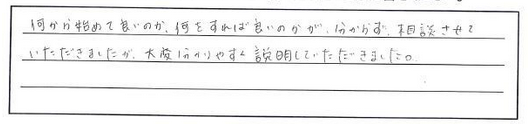 何から始めて良いのか、何をすれば良いのかが、分からず、相談させて
いただきましたが、大変分かりやすく説明していただきました。